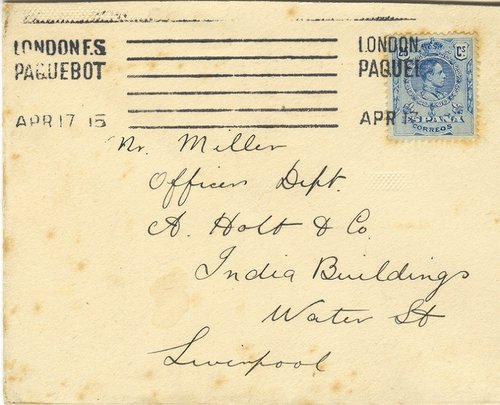 LONDON F.S.
PAQUEBOT
APR 17 15
LONDON
PAQUE
APR 1
Cs
ESPAÑA
CORREOS
Mr. Miller
Officers Dept.
A. Holt & Co
India Buildings
Water St
Liverpool